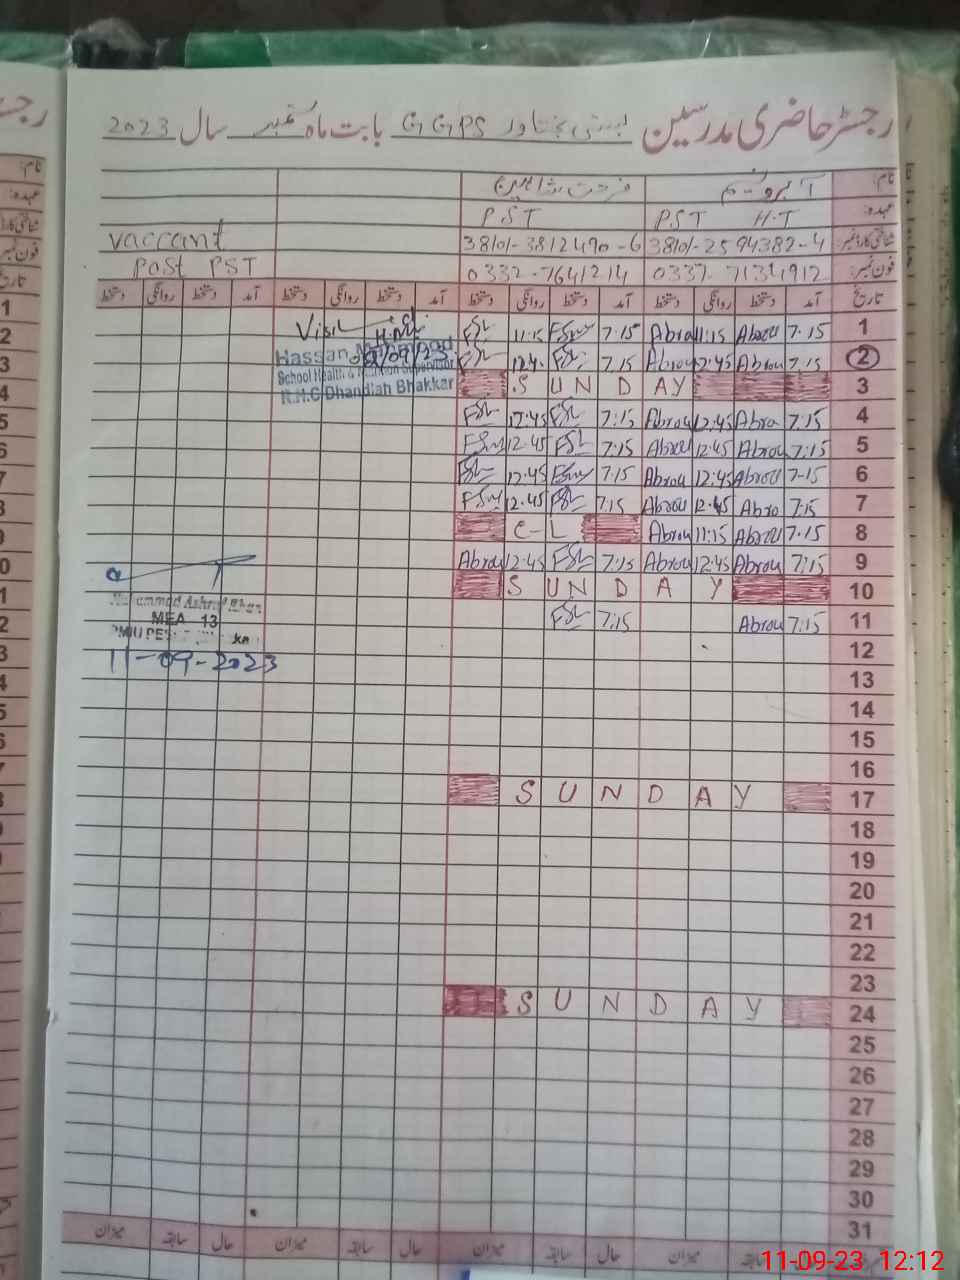 رجسٹر حاضری مدرسین بستی بختاور GGPS بابت ماہ ستمبر سال 2023
نام: آبرو نسیم فرحت شاہین
عہدہ: PST H.T PST
38101-2594382-4 38101-3812490-6 vaccant
فون نمبر: 0332-7641214 Post PST
تاریخ آمد دستخط روانگی دستخط آمد دستخط روانگی دستخط آمد دستخط روانگی دستخط آمد دستخط روانگی دستخط
1 7.15 Abrou 11:15 Abrou 7.15 11:15 Visit
2 7.15 Abrou 12:45 Abrou 7.15
Hassan
School Health & Nutrition Supervisor
R.H.C Dhandlah Bhakkar
3 SUNDAY
4 7.15 Abro 12:45 Abrou 7.15 12:45
5 7:15 Abrou 12:45 Abrou 7:15 12.45
6 7-15 Abrou 12:45 Abrou 7.15 12.45
7 7:15 Abro 12.45 Abrou 7.15 12.45
8 7.15 Abrou 11:15 Abrou C-L
9 7:15 Abrou 12:45 Abrou 7:15 12:45 Abrou
10 SUNDAY
11 7:15 Abrou 7:15
Muhammad Ashraf Khan
MEA 13
11-09-2023
12
13
14
15
16
17 SUNDAY
18
19
20
21
22
23
24 SUNDAY
25
26
27
28
29
30
31
میزان سابقہ حال میزان سابقہ حال میزان سابقہ حال میزان سابقہ حال
11-09-23 12:12